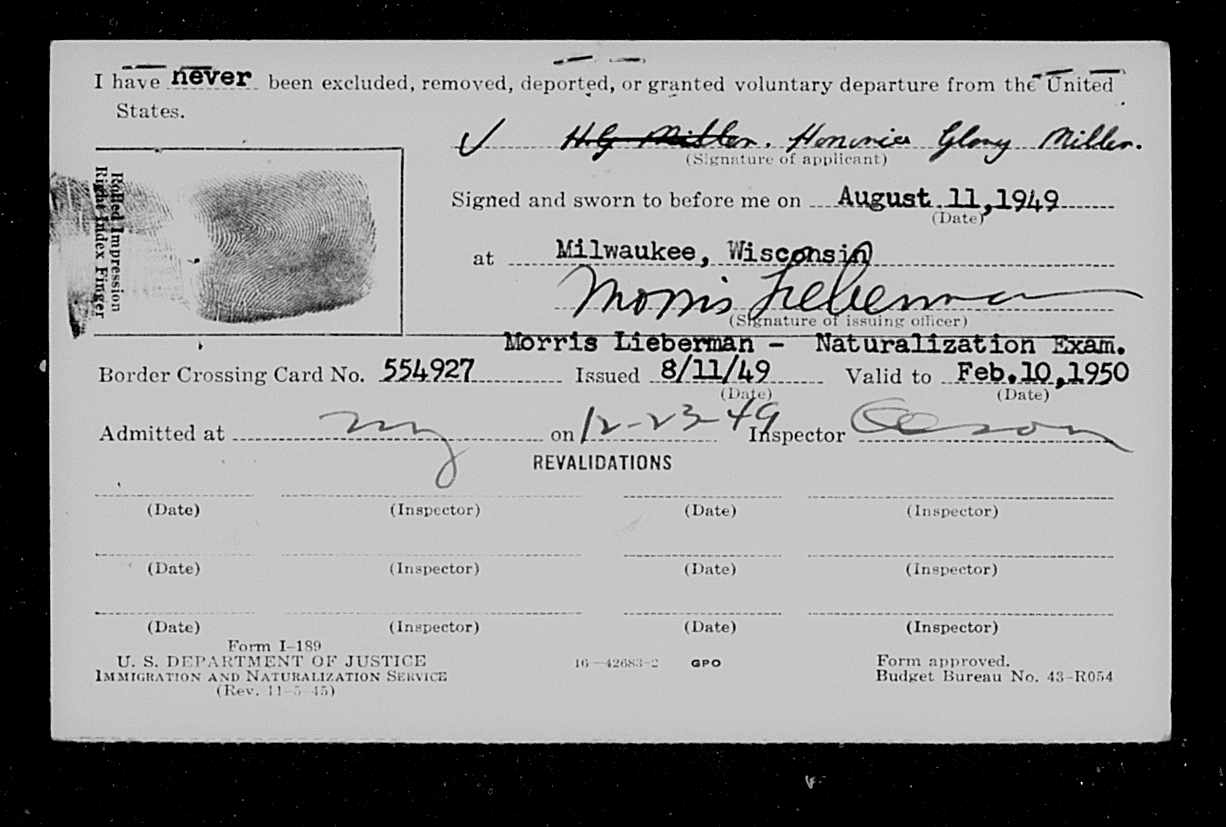 I have never been excluded, removed, deported, or granted voluntary departure from the United
States.
H.G Miller. Honorico Glony Miller.
(Signature of applicant)
Rolled Impression
Right Index Finger
Signed and sworn to before me on August 11, 1949
(Date)
at Milwaukee, Wisconsin
Morris Lieberman
(Signature of issuing officer)
Morris Lieberman - Naturalization Exam.
Border Crossing Card No. 554927 Issued 8/11/49 Valid to Feb. 10, 1950
(Date) (Date)
Admitted at ny on 12-23-49 Inspector
REVALIDATIONS
(Date) (Inspector) (Date) (Inspector)
(Date) (Inspector) (Date) (Inspector)
(Date) (Inspector) (Date) (Inspector)
Form I-189
U. S. DEPARTMENT OF JUSTICE 16—42683-2 GPO Form approved.
IMMIGRATION AND NATURALIZATION SERVICE Budget Bureau No. 43-R054
(Rev. 11-5-45)